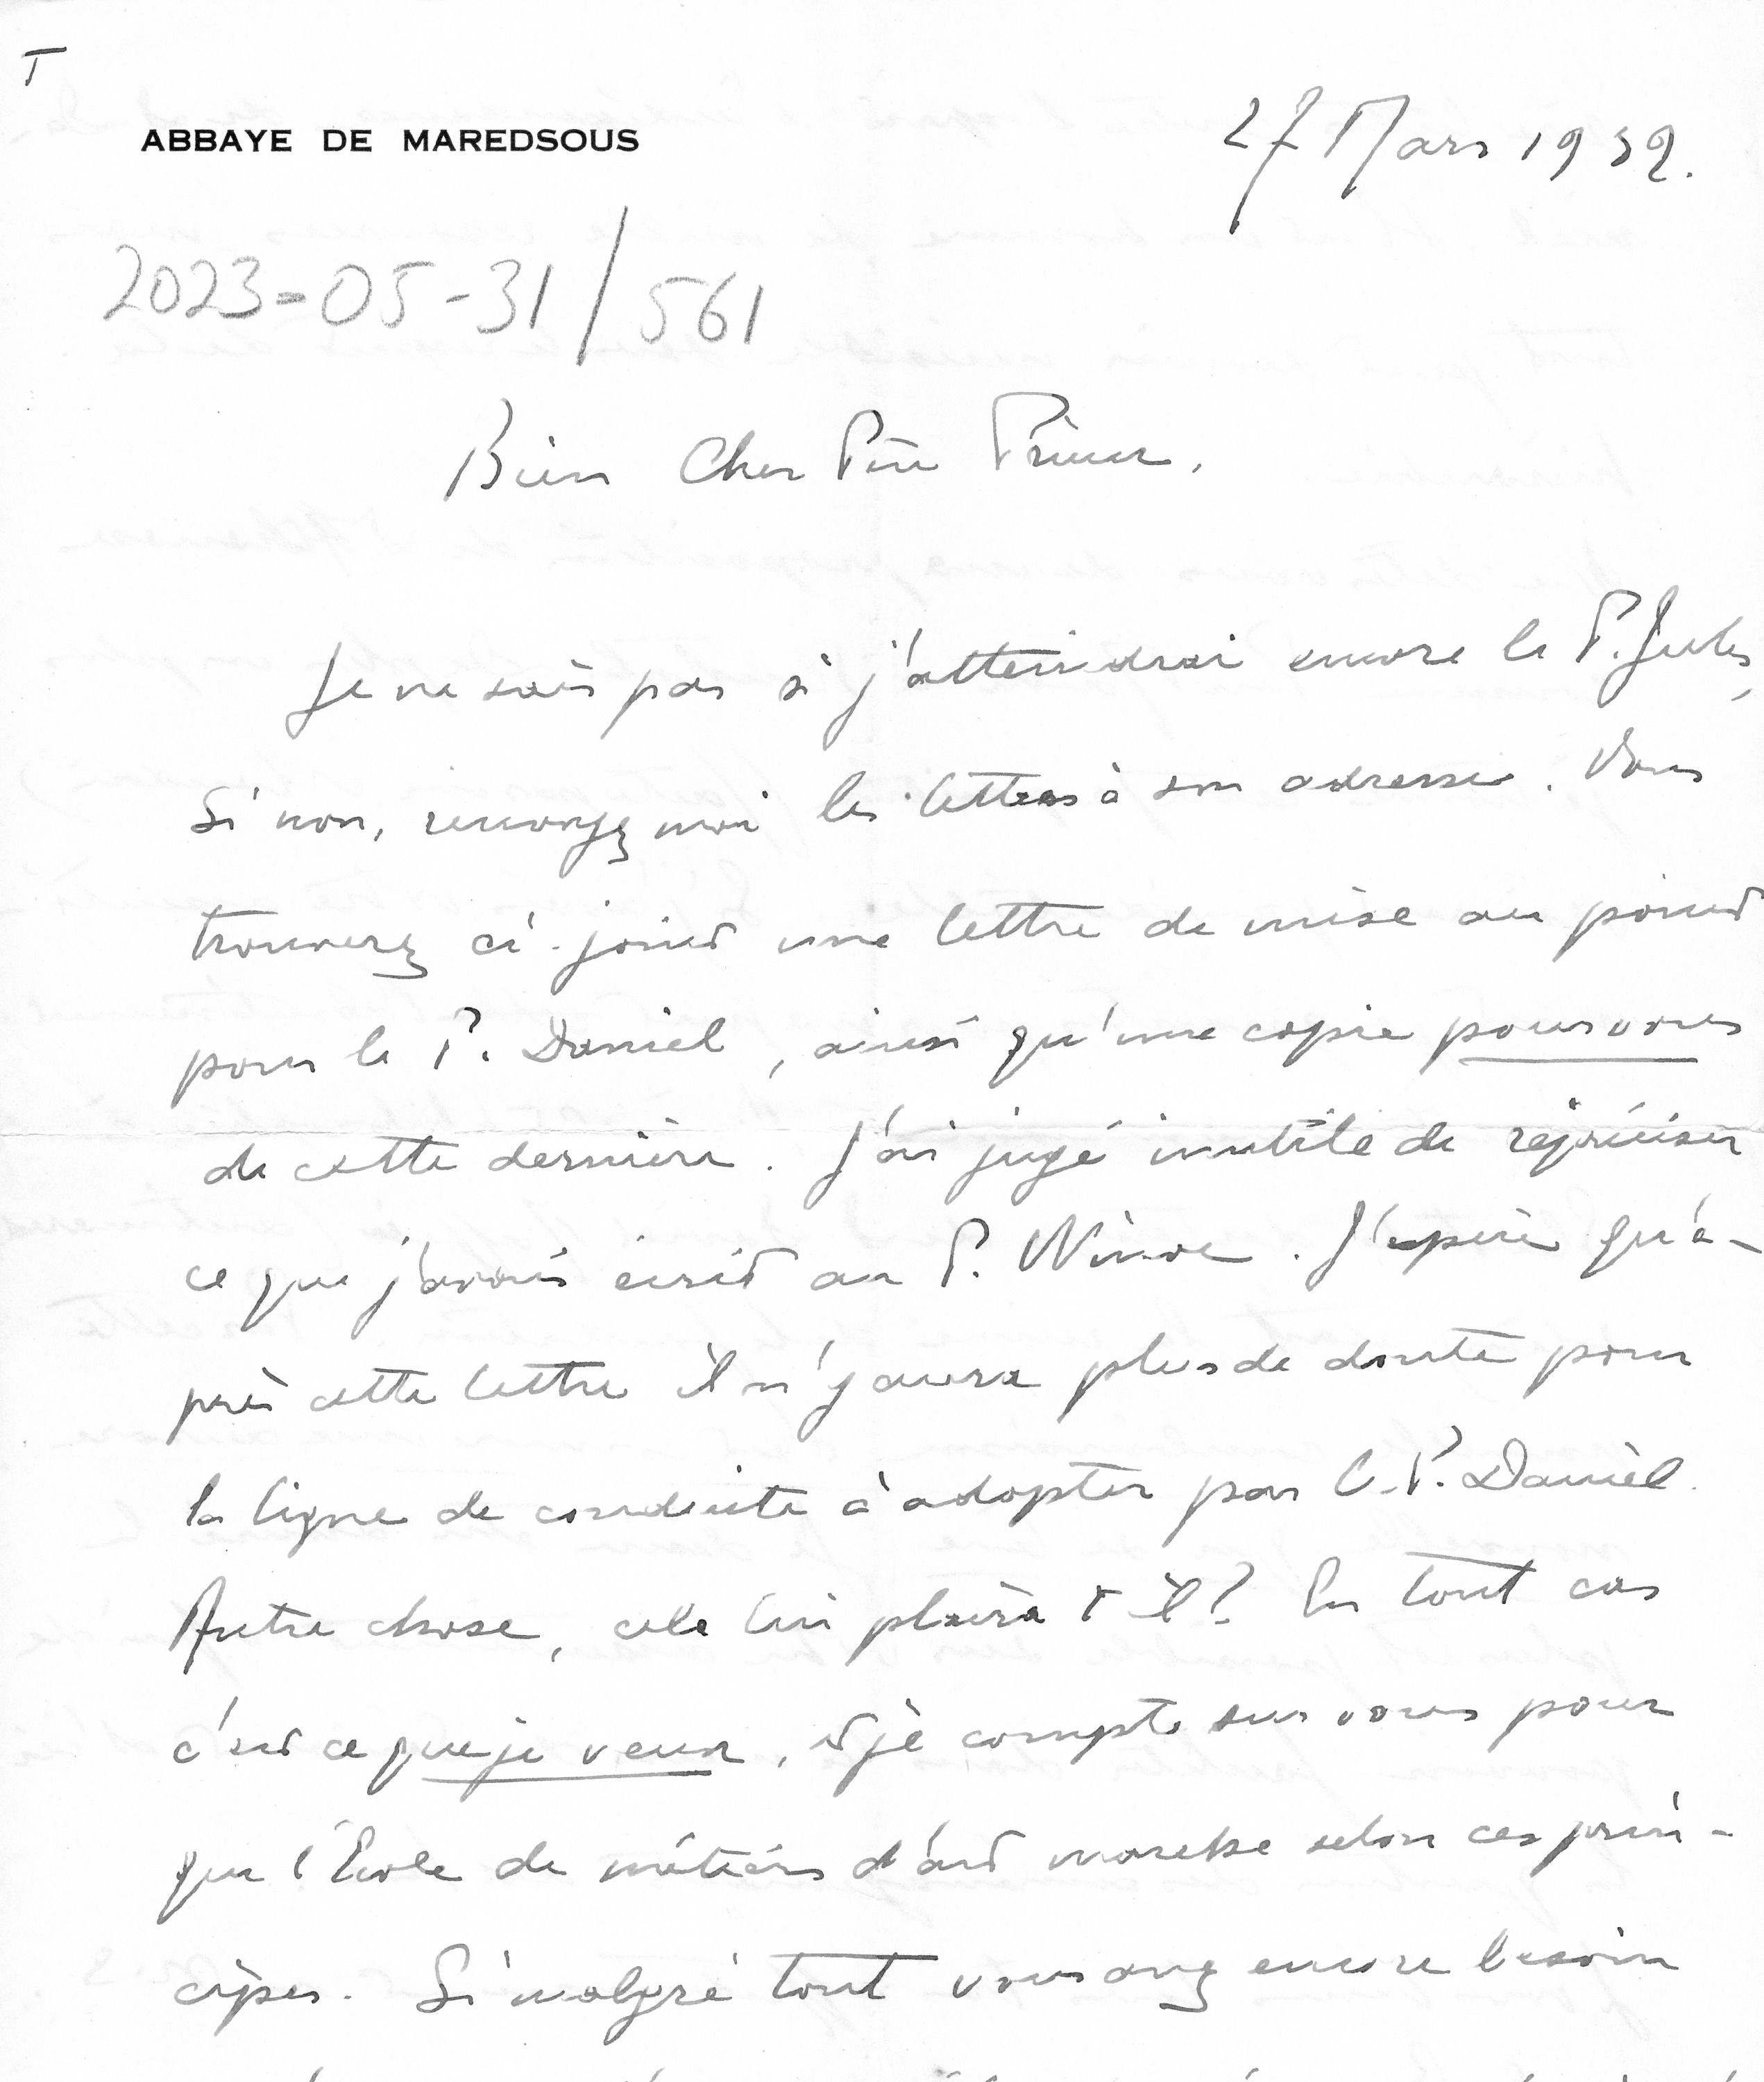 T
ABBAYE DE MAREDSOUS
27 Mars 1939.
2023-05-31/561
Bien Cher Père Prieur,
Je ne sais pas si j'atteindrai encore le P. Jules,
Si non, renvoyez moi les lettres à son adresse. Vous
trouverez ci-joint une lettre de mise au point
pour le P. Daniel, ainsi qu'une copie pour vous
de cette dernière. J'ai jugé inutile de repréciser
ce que j'avais écrit au P. Winoc. J'espère qu'a-
près cette lettre il n'y aura plus de doute pour
la ligne de conduite à adopter par l. P. Daniel.
Autre chose, cela lui plaira t il? En tout cas
c'est ce que je veux, et je compte sur vous pour
que l'École de métiers d'art marche selon ces prin-
cipes. Si malgré tout vous avez encore besoin